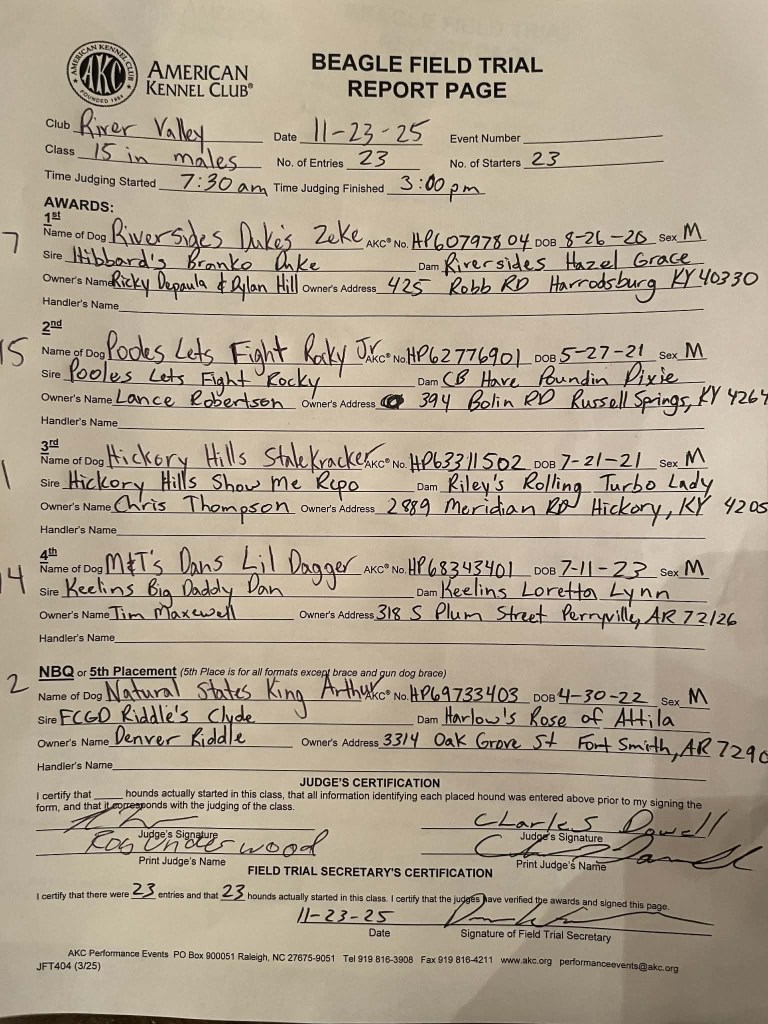 AMERICAN KENNEL CLUB
AKC
FOUNDED 1884
AMERICAN
KENNEL CLUB®
BEAGLE FIELD TRIAL
REPORT PAGE
Club River Valley Date 11-23-25 Event Number
Class 15 in males No. of Entries 23 No. of Starters 23
Time Judging Started 7:30 am Time Judging Finished 3:00 pm
AWARDS:
1st
7 Name of Dog Riversides Duke's Zeke AKC® No. HP60797804 DOB 8-26-20 Sex M
Sire Hibbard's Branko Duke Dam Riversides Hazel Grace
Owner's Name Ricky Depaula & Dylan Hill Owner's Address 425 Robb RD Harrodsburg KY 40330
Handler's Name
2nd
15 Name of Dog Pooles Lets Fight Rocky Jr. AKC® No. HP62776901 DOB 5-27-21 Sex M
Sire Pooles Lets Fight Rocky Dam CB Have Poundin Dixie
Owner's Name Lance Robertson Owner's Address 394 Bolin RD Russell Springs, KY 4264
Handler's Name
3rd
1 Name of Dog Hickory Hills Stalekracker AKC® No. HP63311502 DOB 7-21-21 Sex M
Sire Hickory Hills Show Me Repo Dam Riley's Rolling Turbo Lady
Owner's Name Chris Thompson Owner's Address 2889 Meridian RD Hickory, KY 4205
Handler's Name
4th
14 Name of Dog M&T's Dans Lil Dagger AKC® No. HP68343401 DOB 7-11-23 Sex M
Sire Keelins Big Daddy Dan Dam Keelins Loretta Lynn
Owner's Name Tim Maxewell Owner's Address 318 S Plum Street Perryville, AR 72126
Handler's Name
NBQ or 5th Placement (5th Place is for all formats except brace and gun dog brace)
2 Name of Dog Natural States King Arthur AKC® No. HP69733403 DOB 4-30-22 Sex M
Sire FCGD Riddle's Clyde Dam Harlow's Rose of Attila
Owner's Name Denver Riddle Owner's Address 3314 Oak Grove St Fort Smith, AR 7290
Handler's Name
JUDGE'S CERTIFICATION
I certify that hounds actually started in this class, that all information identifying each placed hound was entered above prior to my signing the
form, and that it corresponds with the judging of the class.
Charles Dowell
Judge's Signature Judge's Signature
Rob Underwood
Print Judge's Name Print Judge's Name
FIELD TRIAL SECRETARY'S CERTIFICATION
I certify that there were 23 entries and that 23 hounds actually started in this class. I certify that the judges have verified the awards and signed this page.
11-23-25
Date Signature of Field Trial Secretary
AKC Performance Events PO Box 900051 Raleigh, NC 27675-9051 Tel 919 816-3908 Fax 919 816-4211 www.akc.org performanceevents@akc.org
JFT404 (3/25)